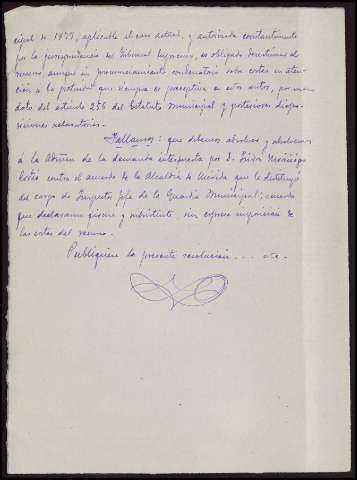 cipal de 1877, aplicable al caso actual, y autorizada constantemente
por la jurisprudencia del Tribunal Supremo, es obligado desestimar el
recurso, aunque sin pronunciamiento condenatorio sobre costas en aten-
ción a la gratuidad que siempre es preceptiva en estos autos, por man
dato del artículo 256 del Estatuto Municipal y posteriores dispo-
siciones aclaratorias.
Fallamos: que debemos absolver y absolvemos
á la Admon de la demanda interpuesta por D. Isidro
contra el acuerdo de la Alcaldía de Mérida que le destituyó
del cargo de Inspector Jefe de la Guardia Municipal; acuerdo
que declaramos firme y subsistente, sin expresa imposición de
las costas del recurso.
Publíquese la presente resolución ... etc.